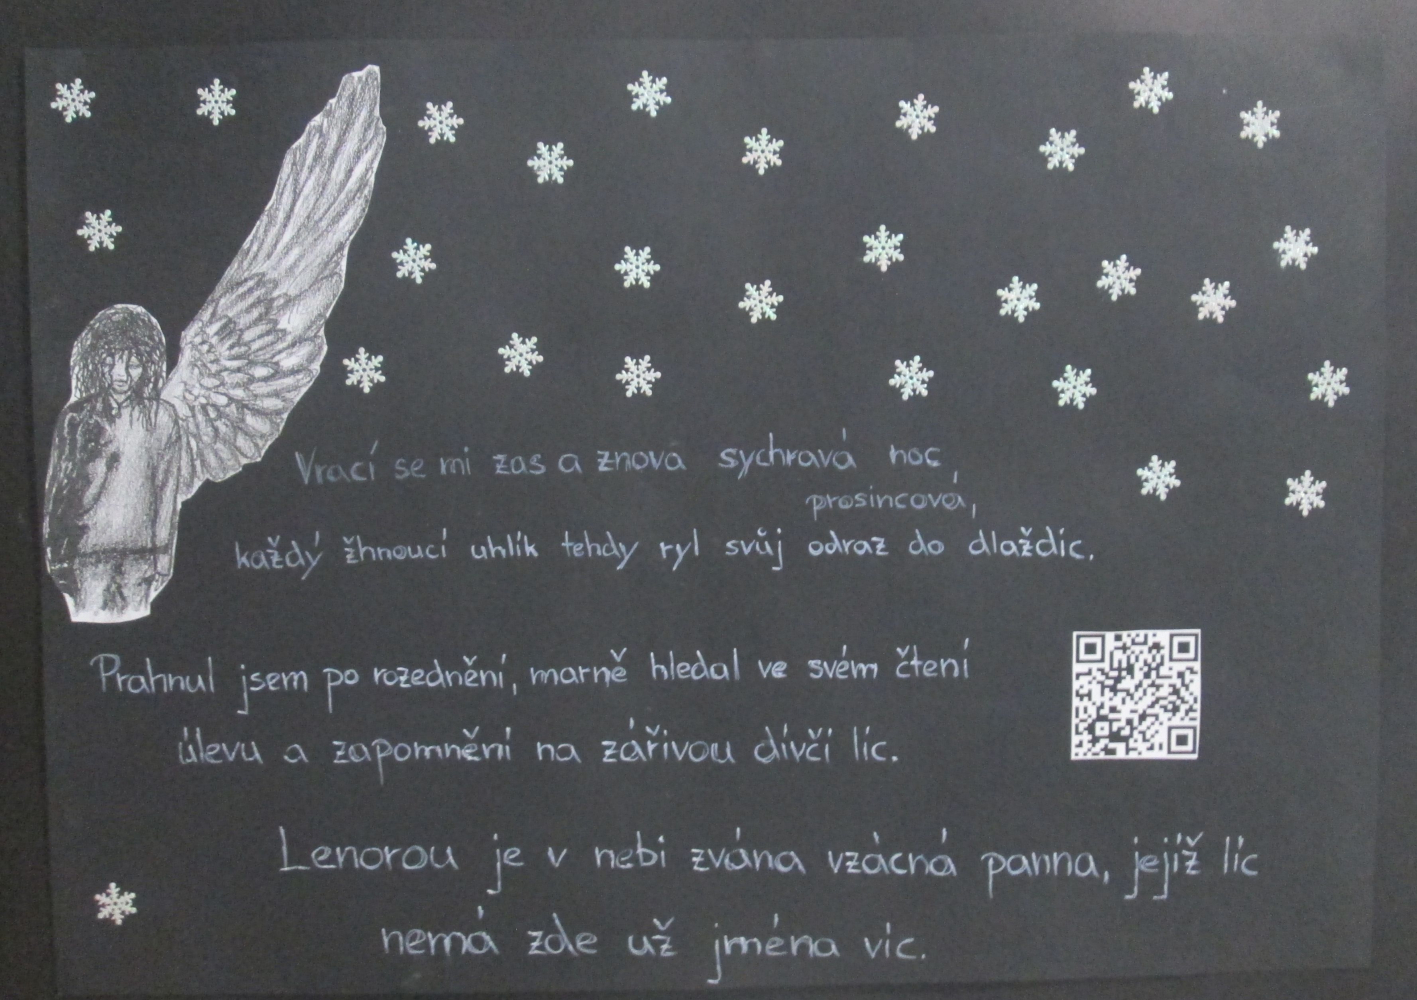 Vrací se mi zas a znova sychravá noc,
prosincová,
každý žhnoucí uhlík tehdy ryl svůj odraz do dlaždic.
Prahnul jsem po rozednění, marně hledal ve svém čtení
úlevu a zapomnění na zářivou dívčí líc.
Lenorou je v nebi zvána vzácná panna, jejíž líc
nemá zde už jména víc.